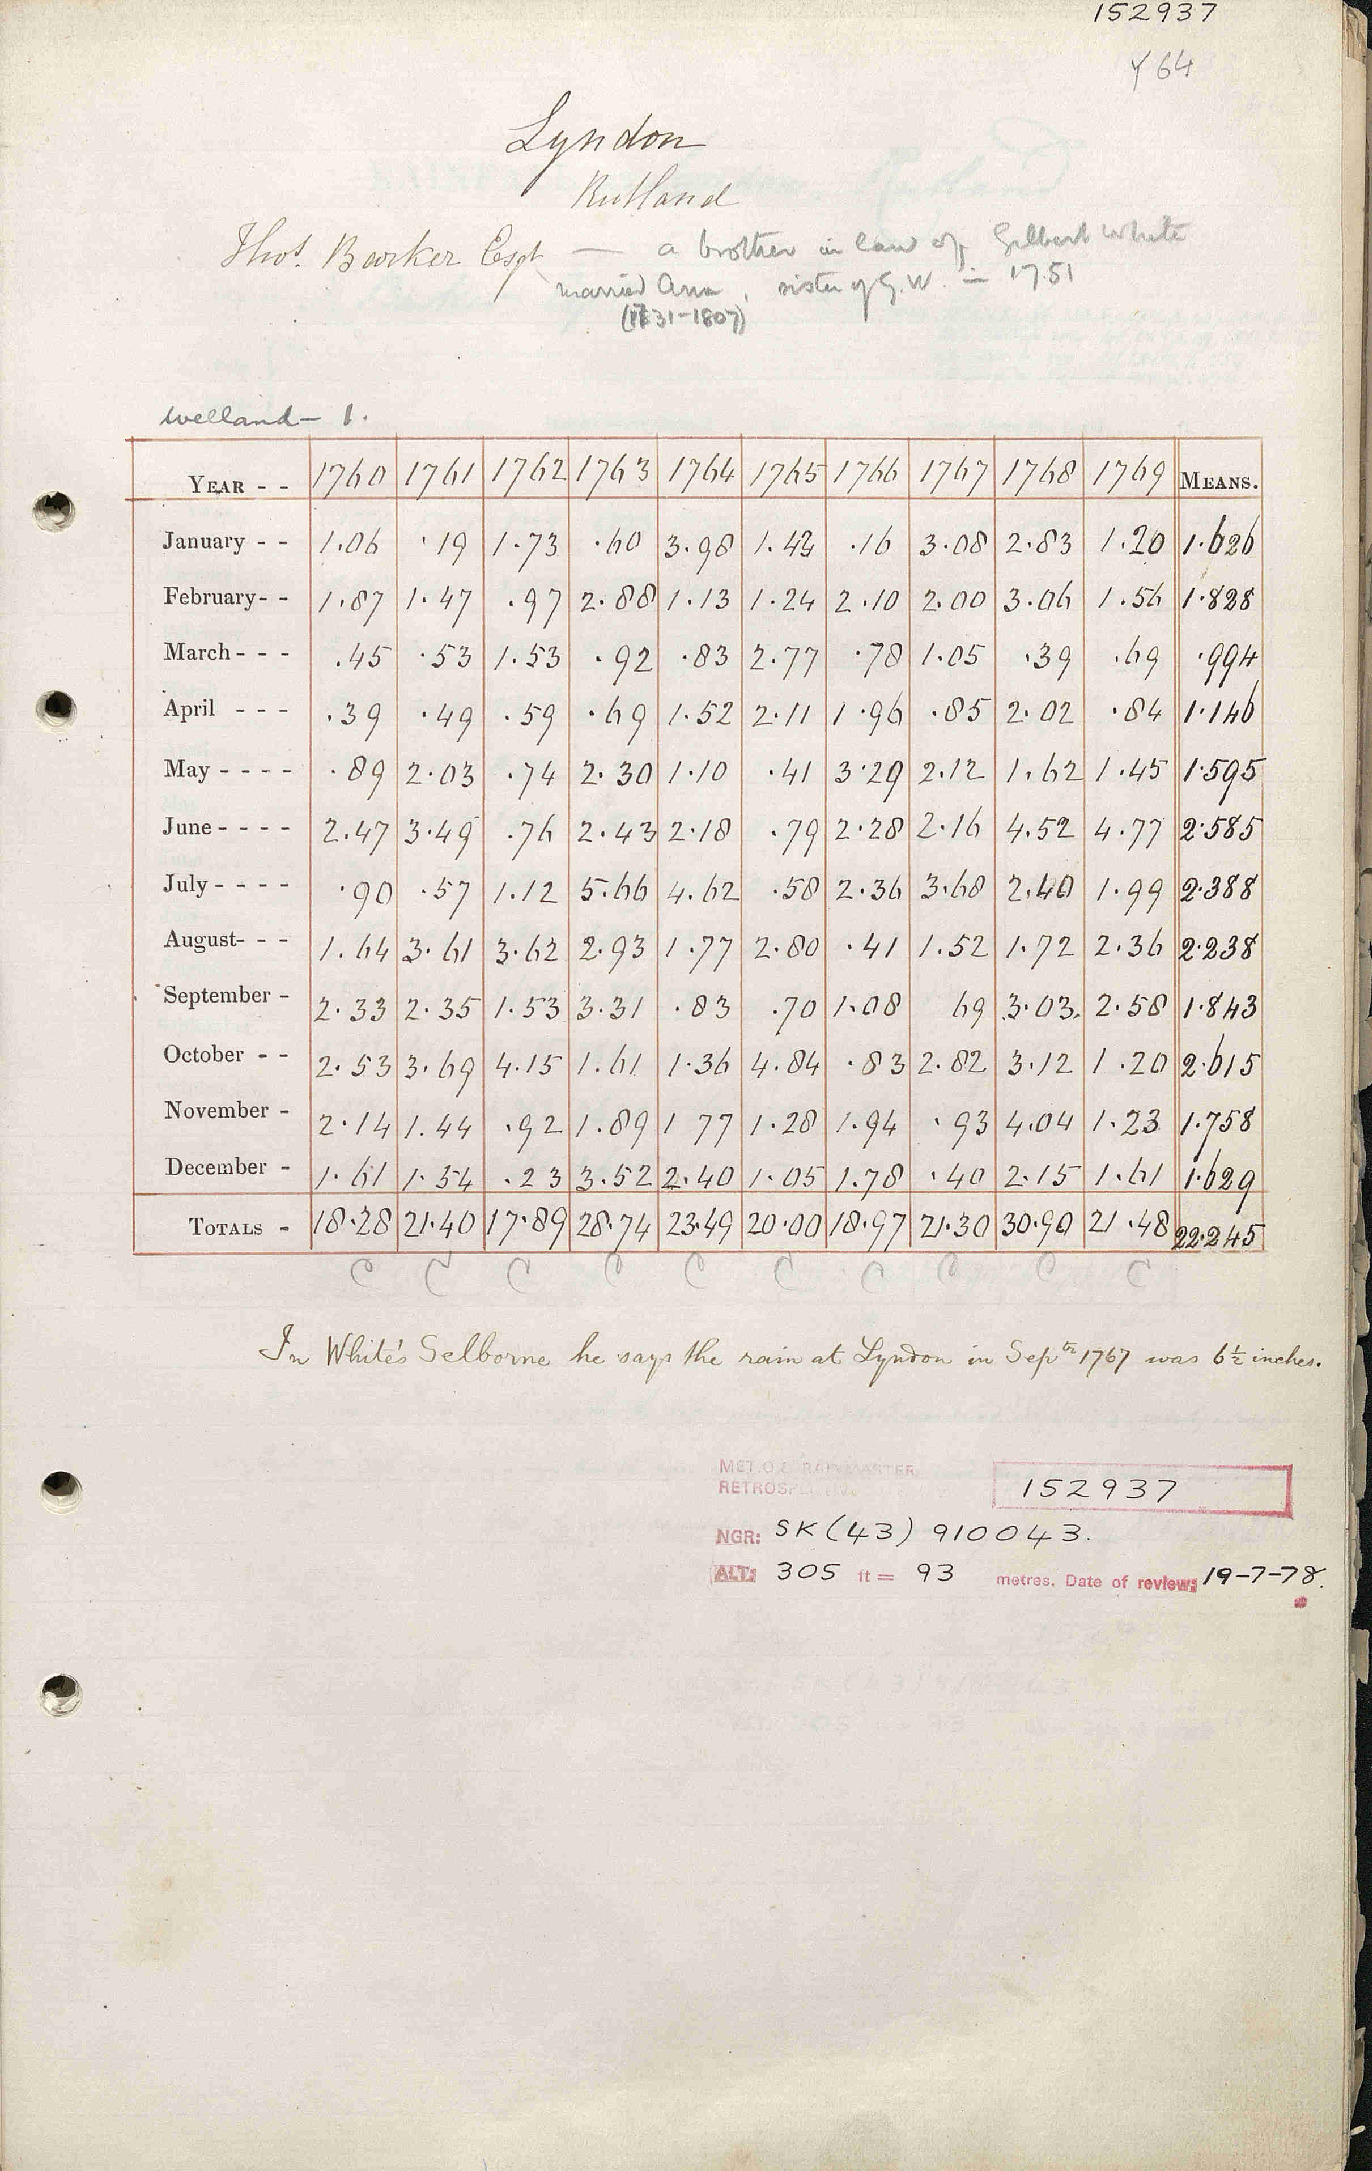 152937
Y 64
Lyndon
Rutland
Thos. Barker Esqr — a brother in law of Gilbert White
married Ann, sister of G.W. in 1751
(1731-1807)
Welland - 1.
YEAR - - 1760 1761 1762 1763 1764 1765 1766 1767 1768 1769 MEANS.
January - - 1.06 .19 1.73 .60 3.98 1.42 .16 3.08 2.83 1.20 1.626
February - - 1.87 1.47 .97 2.88 1.13 1.24 2.10 2.00 3.06 1.56 1.828
March - - - .45 .53 1.53 .92 .83 2.77 .78 1.05 .39 .69 .994
April - - - .39 .49 .59 .69 1.52 2.11 1.96 .85 2.02 .84 1.146
May - - - - .89 2.03 .74 2.30 1.10 .41 3.29 2.12 1.62 1.45 1.595
June - - - - 2.47 3.49 .76 2.43 2.18 .79 2.28 2.16 4.52 4.77 2.585
July - - - - .90 .57 1.12 5.66 4.62 .58 2.36 3.68 2.40 1.99 2.388
August - - - 1.64 3.61 3.62 2.93 1.77 2.80 .41 1.52 1.72 2.36 2.238
September - 2.33 2.35 1.53 3.31 .83 .70 1.08 69 3.03 2.58 1.843
October - - 2.53 3.69 4.15 1.61 1.36 4.84 .83 2.82 3.12 1.20 2.615
November - 2.14 1.44 .92 1.89 1 77 1.28 1.94 .93 4.04 1.23 1.758
December - 1.61 1.54 .23 3.52 2.40 1.05 1.78 .40 2.15 1.61 1.629
TOTALS - 18.28 21.40 17.89 28.74 23.49 20.00 18.97 21.30 30.90 21.48 22.245
C C C C C C C C C C
In White's Selborne he says the rain at Lyndon in Septr 1767 was 6½ inches.
MET.O.8 RAINMASTER
152937
NGR: SK (43) 910043.
ALT: 305 ft = 93 metres. Date of review: 19-7-78.